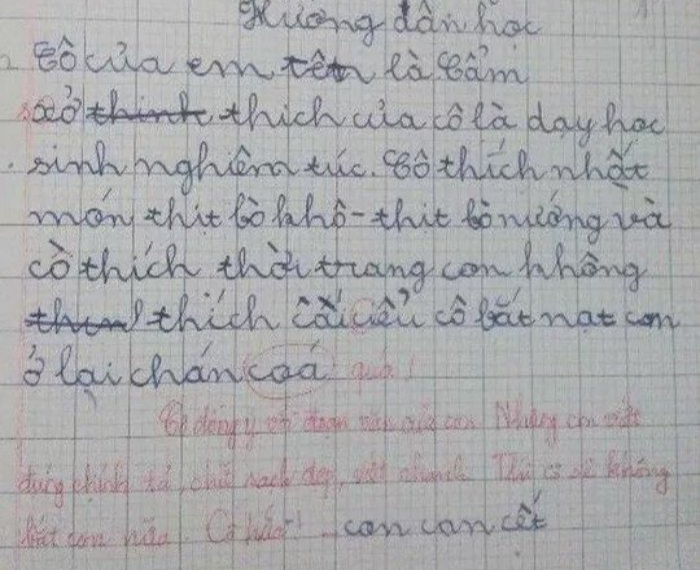 Hướng dẫn học
Cô của em tên là Cẩm
sở thinh thich của cô là dạy học
sinh nghiêm túc. Cô thích nhất
món thịt bò khô - thịt bò nướng và
cô thích thời trang con không
thích cái kiểu cô bắt nạt con
ở lại chán coá quá!
Cô đồng ý với đoạn văn của con. Nhưng con viết
đúng chính tả, chữ sạch đẹp, viết nhanh. Thì cô sẽ không
bắt con nữa. Cô hứa! con can cết